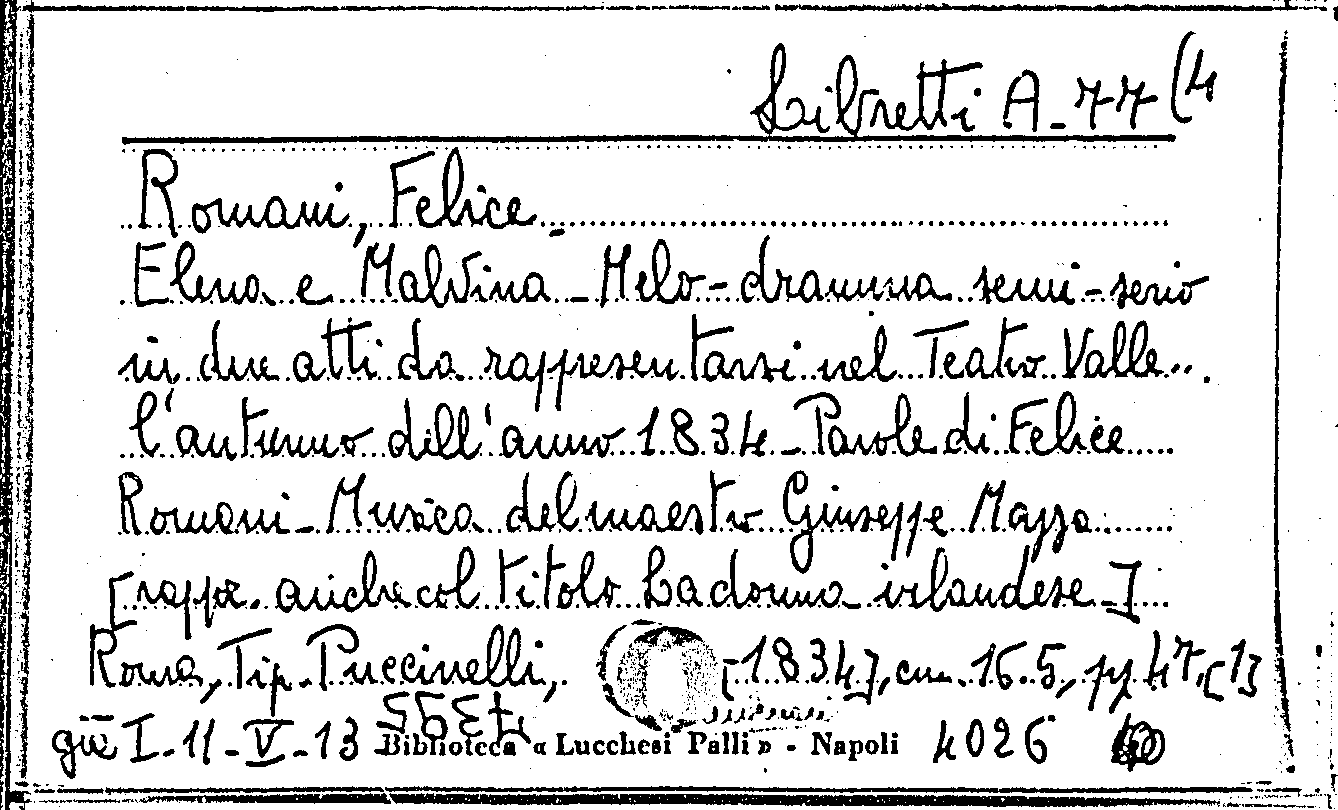 Libretti A-77(4
Romani, Felice.
Elena e Malvina - Melo-dramma semi-serio
in due atti da rappresentarsi nel Teatro Valle...
l'autunno dell'anno 1834 - Parole di Felice
Romani - Musica del maestro Giuseppe Mazza
[rappr. anche col titolo La donna irlandese]
Roma, Tip. Puccinelli, [1834], cm. 16.5, pp 47, [1]
già I-11-V-13 Biblioteca « Lucchesi Palli » - Napoli 4026